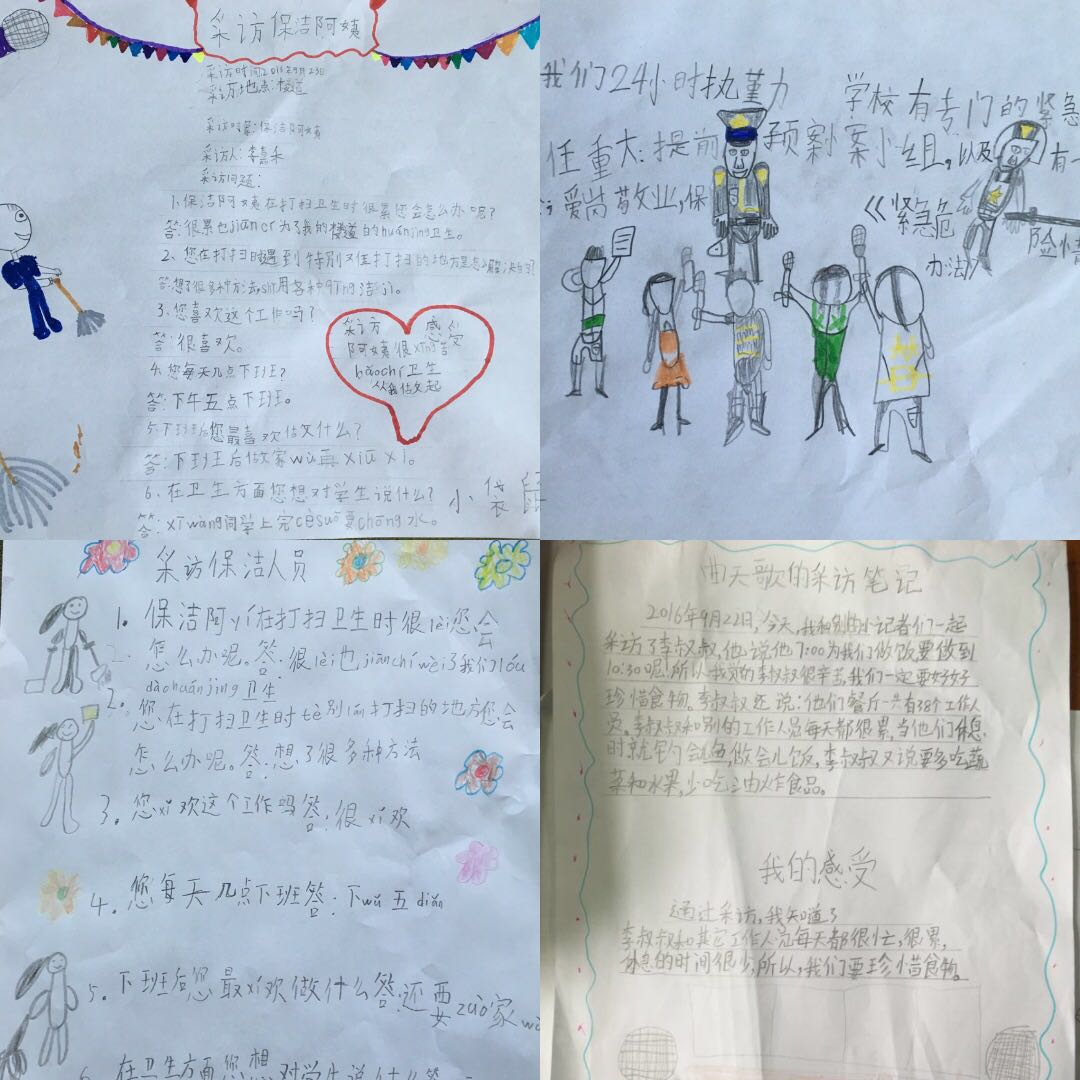 采访保洁阿姨
采访时间2016年9月23日
采访地点:楼道
采访对象:保洁阿姨
采访人:李嘉禾
采访问题:
1、保洁阿姨在打扫卫生时很累您会怎么办呢?
答:很累也jiān cí为了我的楼道的huánjìng卫生。
2、您在打扫时遇到特别又住打扫的地方是怎么解决的?
答:想了很多种方法
3、您喜欢这个工作吗?
答:很喜欢。
4、您每天几点下班?
答:下午五点下班。
5、下班后您最喜欢做什么?
答:下班后做家wù再xiū xi。
6、在卫生方面您想对学生说什么?
答:xī wàng同学上完cè suǒ要chōng水。
小袋鼠
采访 感受
阿姨很xīng苦
bǎo chí卫生
从我做起
我们24小时执勤力
学校有专门的紧急
任重大:提前预案小组,以及
有一
爱岗敬业,保
《紧急危
险情
办法》
采访保洁人员
1. 保洁阿yí在打扫卫生时很lèi您会
怎么办呢。答:很lèi也jiānchí wèi了我们lóu
dào huánjìng卫生
2. 您在打扫卫生时tè别nán打扫的地方您会
怎么办呢。答:想了很多种方法
3. 您xǐ欢这个工作吗答:很xǐ欢
4. 您每天几点下班答:下wǔ五diǎn
5. 下班后您最xǐ欢做什么答:还要zuò家wù
在卫生方面您想对学生说什么答
曲天歌的采访笔记
2016年9月22日,今天,我和别的小记者们一起
采访了李叔叔,他说他7:00为我们做饭要做到
10:30呢!所以我觉的李叔叔很辛苦,我们一定要好好
珍惜食物。李叔叔还说:他们餐厅一共有38个工作人
员。李叔叔和别的工作人员每天都很累,当他们休息
时就钓会儿鱼,做会儿饭,李叔叔又说要多吃蔬
菜和水果,少吃油炸食品。
我的感受
通过采访,我知道了
李叔叔和其它工作人员每天都很忙,很累,
休息的时间很少,所以,我们要珍惜食物。